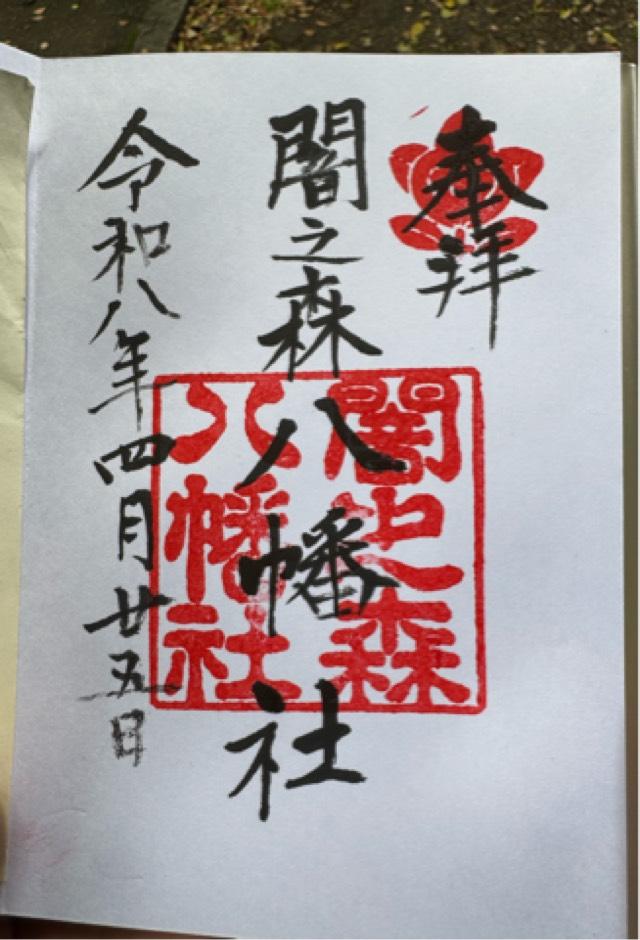 奉拝
闇之森八幡社
闇之森
八幡社
令和八年四月廿五日